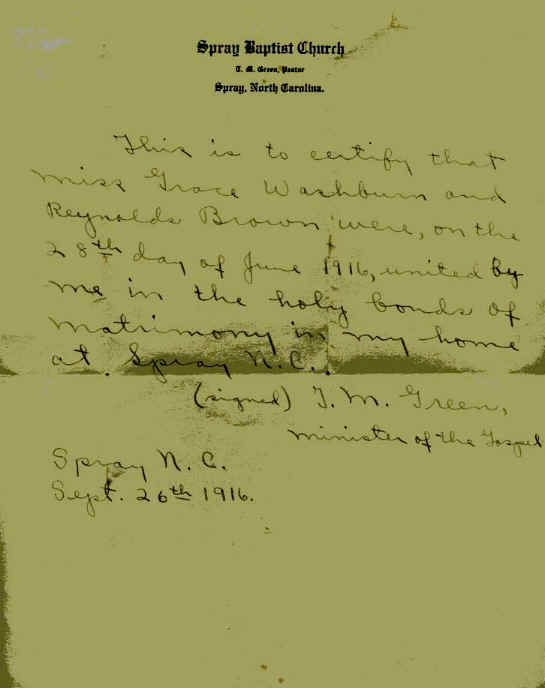 Spray Baptist Church
T. M. Green, Pastor
Spray, North Carolina.
This is to certify that
Miss Grace Washburn and
Reynolds Brown were, on the
28th day of June 1916, united by
me in the holy bonds of
matrimony in my home
at Spray N.C..
(signed) T. M. Green,
Minister of the Gospel
Spray N. C.
Sept. 26th 1916.